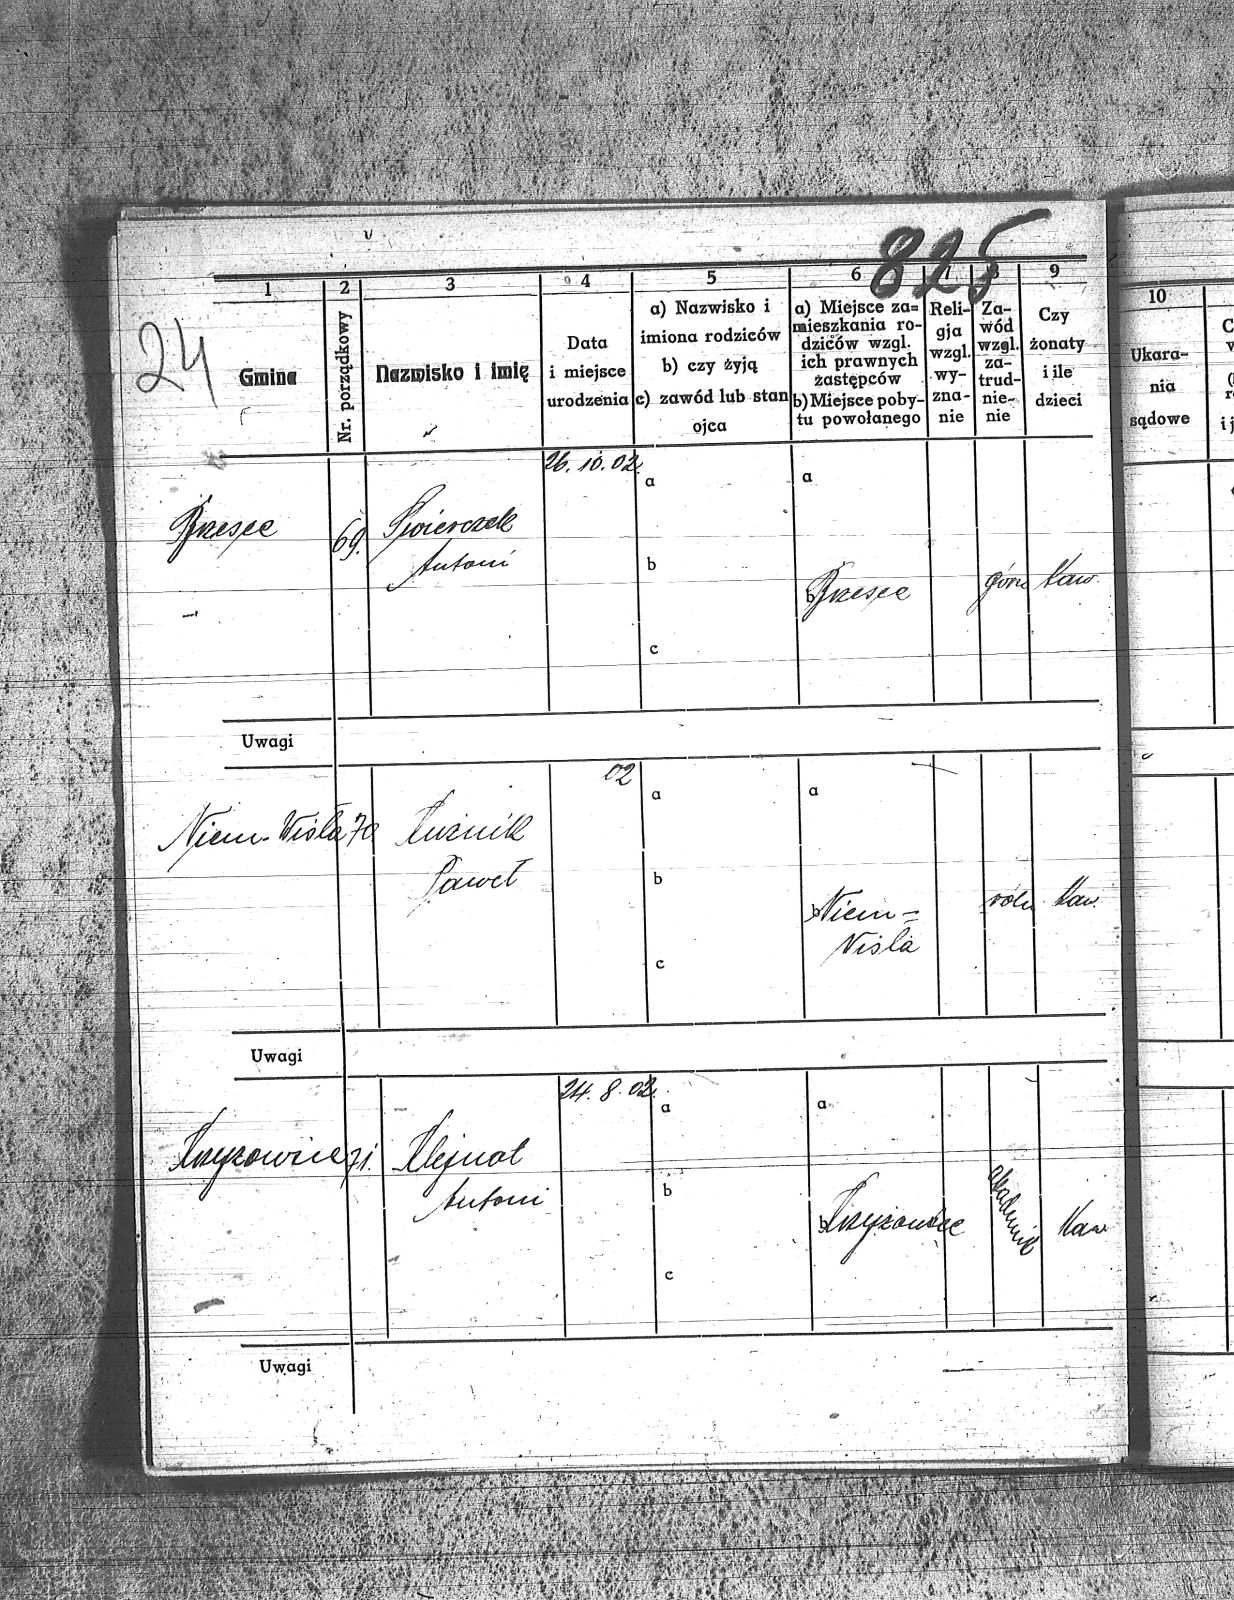 825
24
1 2 3 4 5 6 7 8 9
Gmina
Nr. porządkowy
Nazwisko i imię
Data
i miejsce
urodzenia
a) Nazwisko i
imiona rodziców
b) czy żyją
c) zawód lub stan
ojca
a) Miejsce za=
mieszkania ro-
dziców wzgl.
ich prawnych
zastępców
b) Miejsce poby-
tu powołanego
Reli-
gja
wzgl.
wy-
zna-
nie
Za-
wód
wzgl.
za-
trud-
nie-
nie
Czy
żonaty
i ile
dzieci
10
Ukara-
nia
sądowe
26.10.02.
a a
Brzeźce 69. Świerczek
Antoni
b
b Brzeźce górn Kaw.
c
Uwagi
02
a a
Niem-Wisła 70 Kuźnik
Paweł
b
b Niem-
Wisła
roln Kaw.
c
Uwagi
24.8.02.
a a
Krzyżowice 71. Klejnot
Antoni
b
b Krzyżowice
akademik
Kaw
c
Uwagi